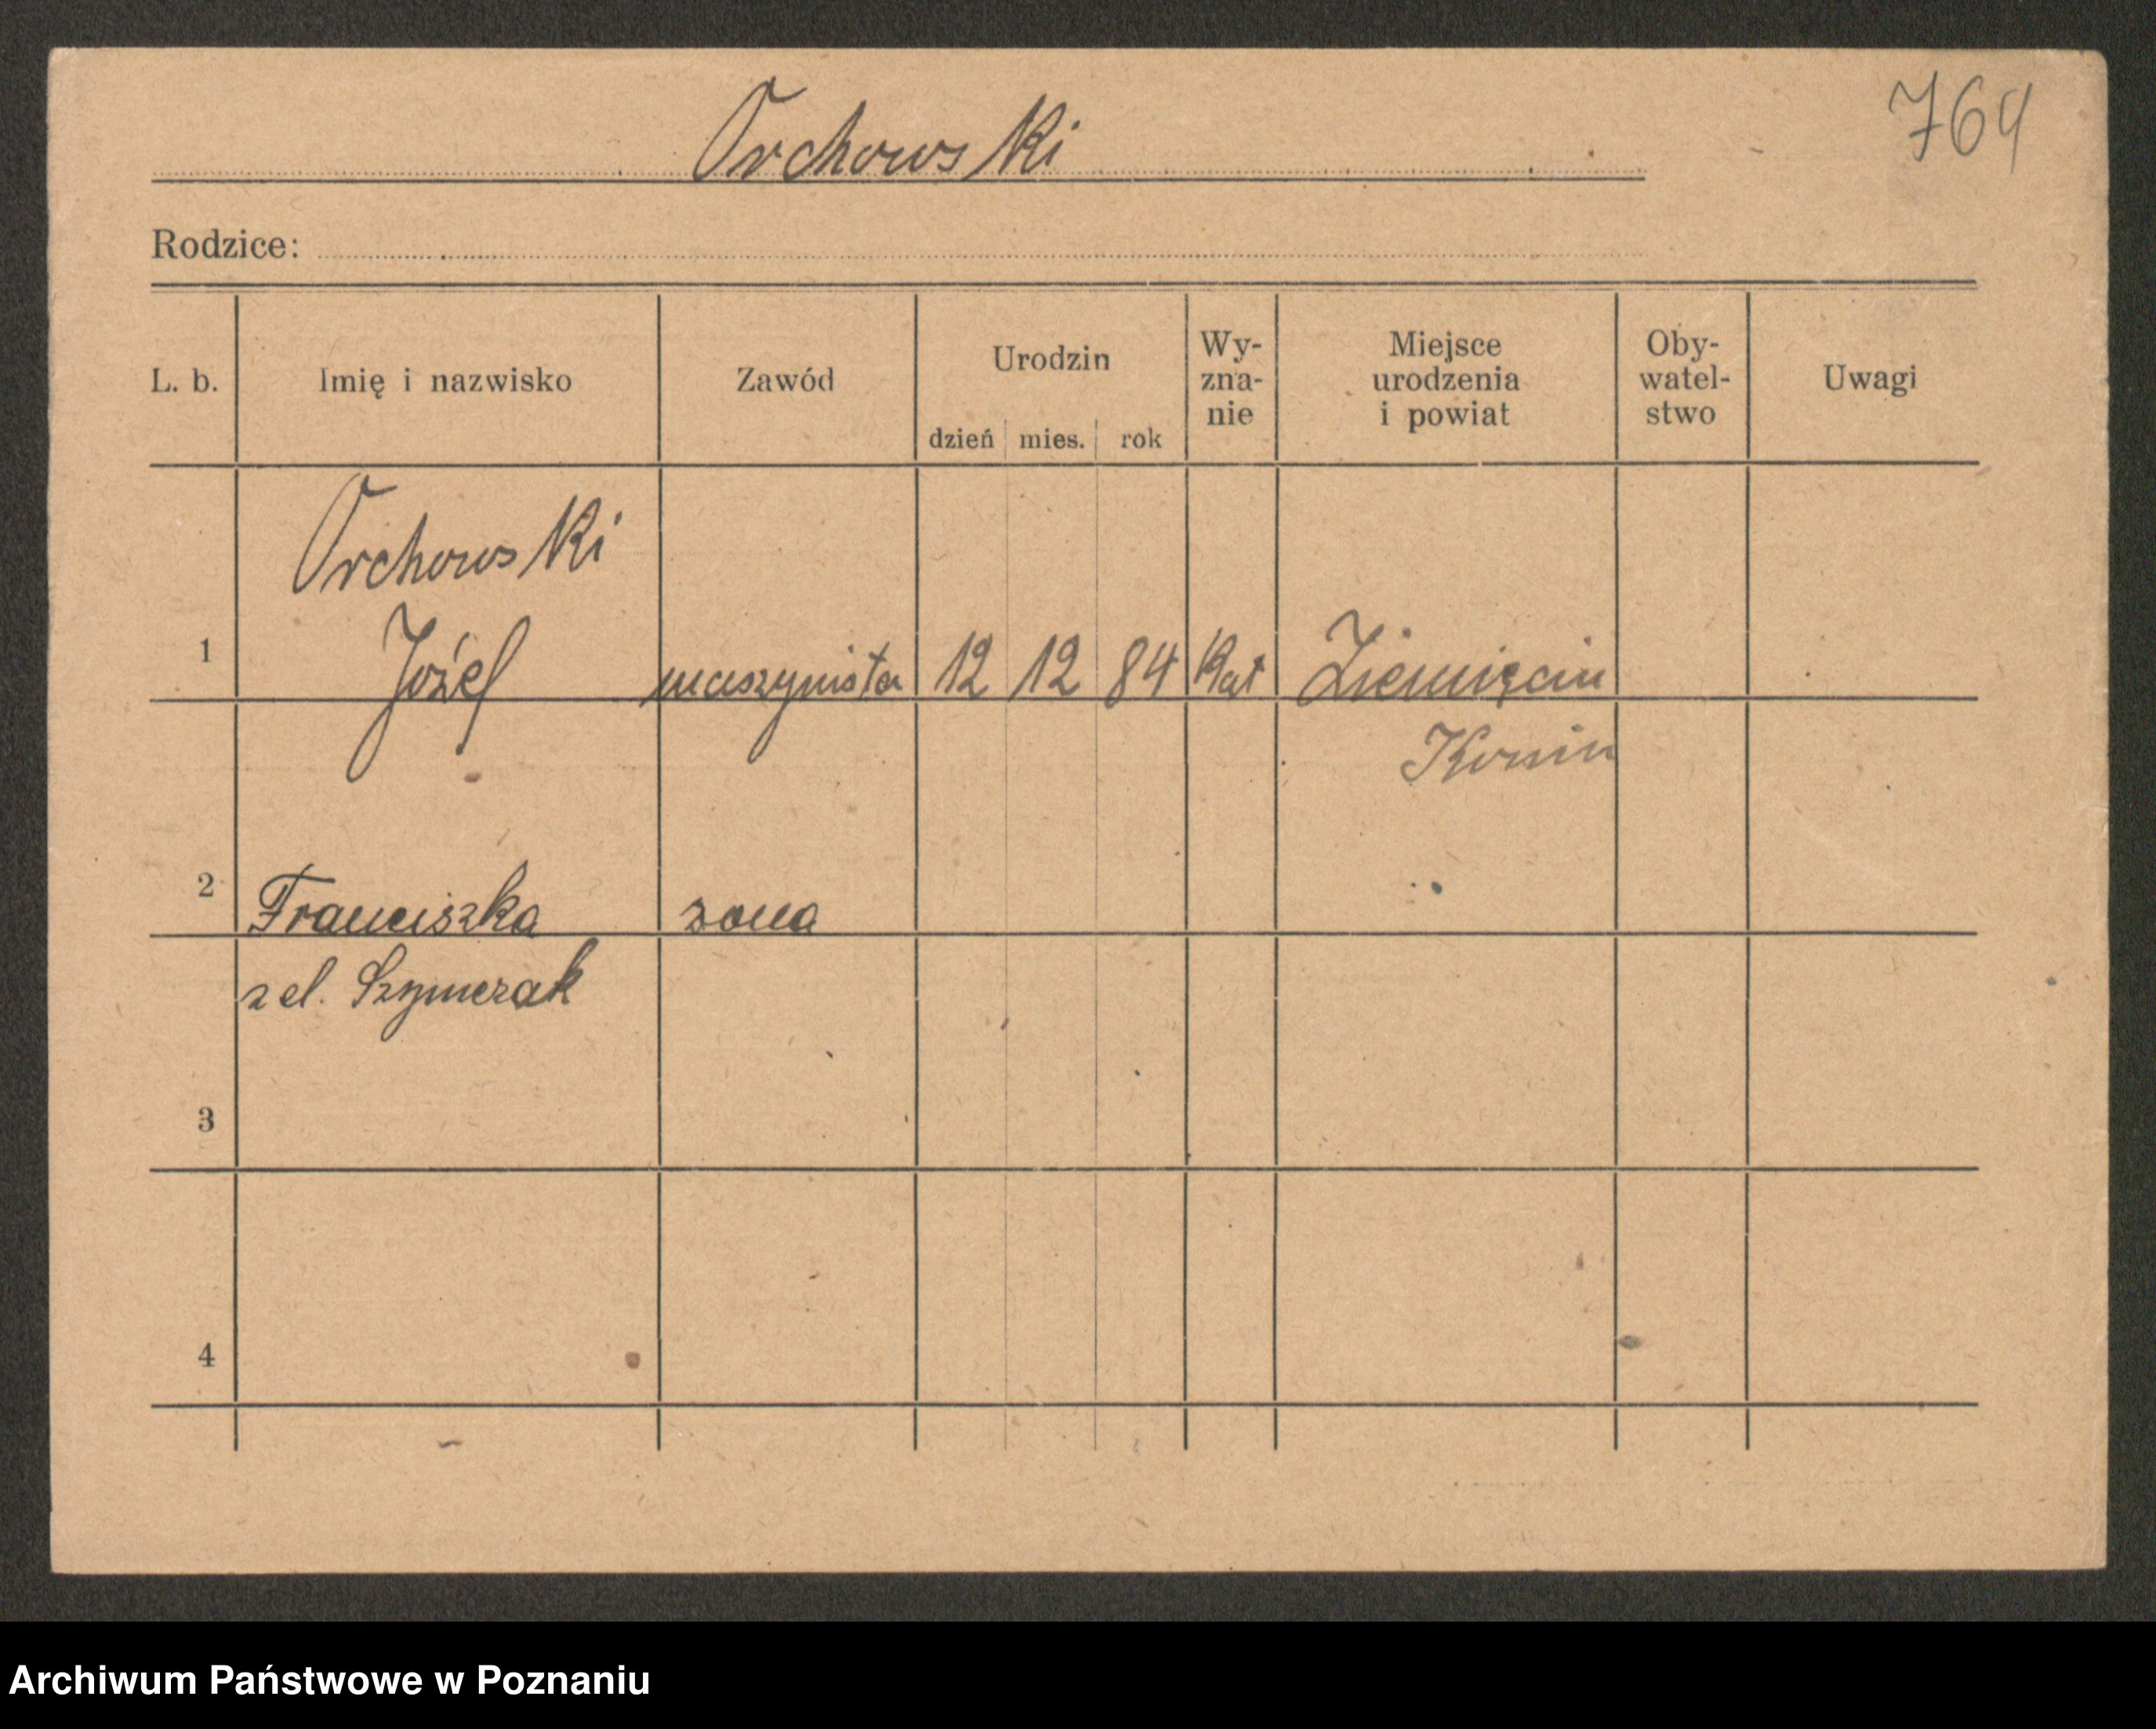 764
Orchowski
Rodzice:
L. b. Imię i nazwisko Zawód Urodzin dzień mies. rok Wy-zna-nie Miejsce urodzenia i powiat Oby-watel-stwo Uwagi
Orchowski
1 Józef maszynista 12 12 84 Kat Ziemięcin
Konin
2 Franciszka zona
z el. Szymczak
3
4
Archiwum Państwowe w Poznaniu